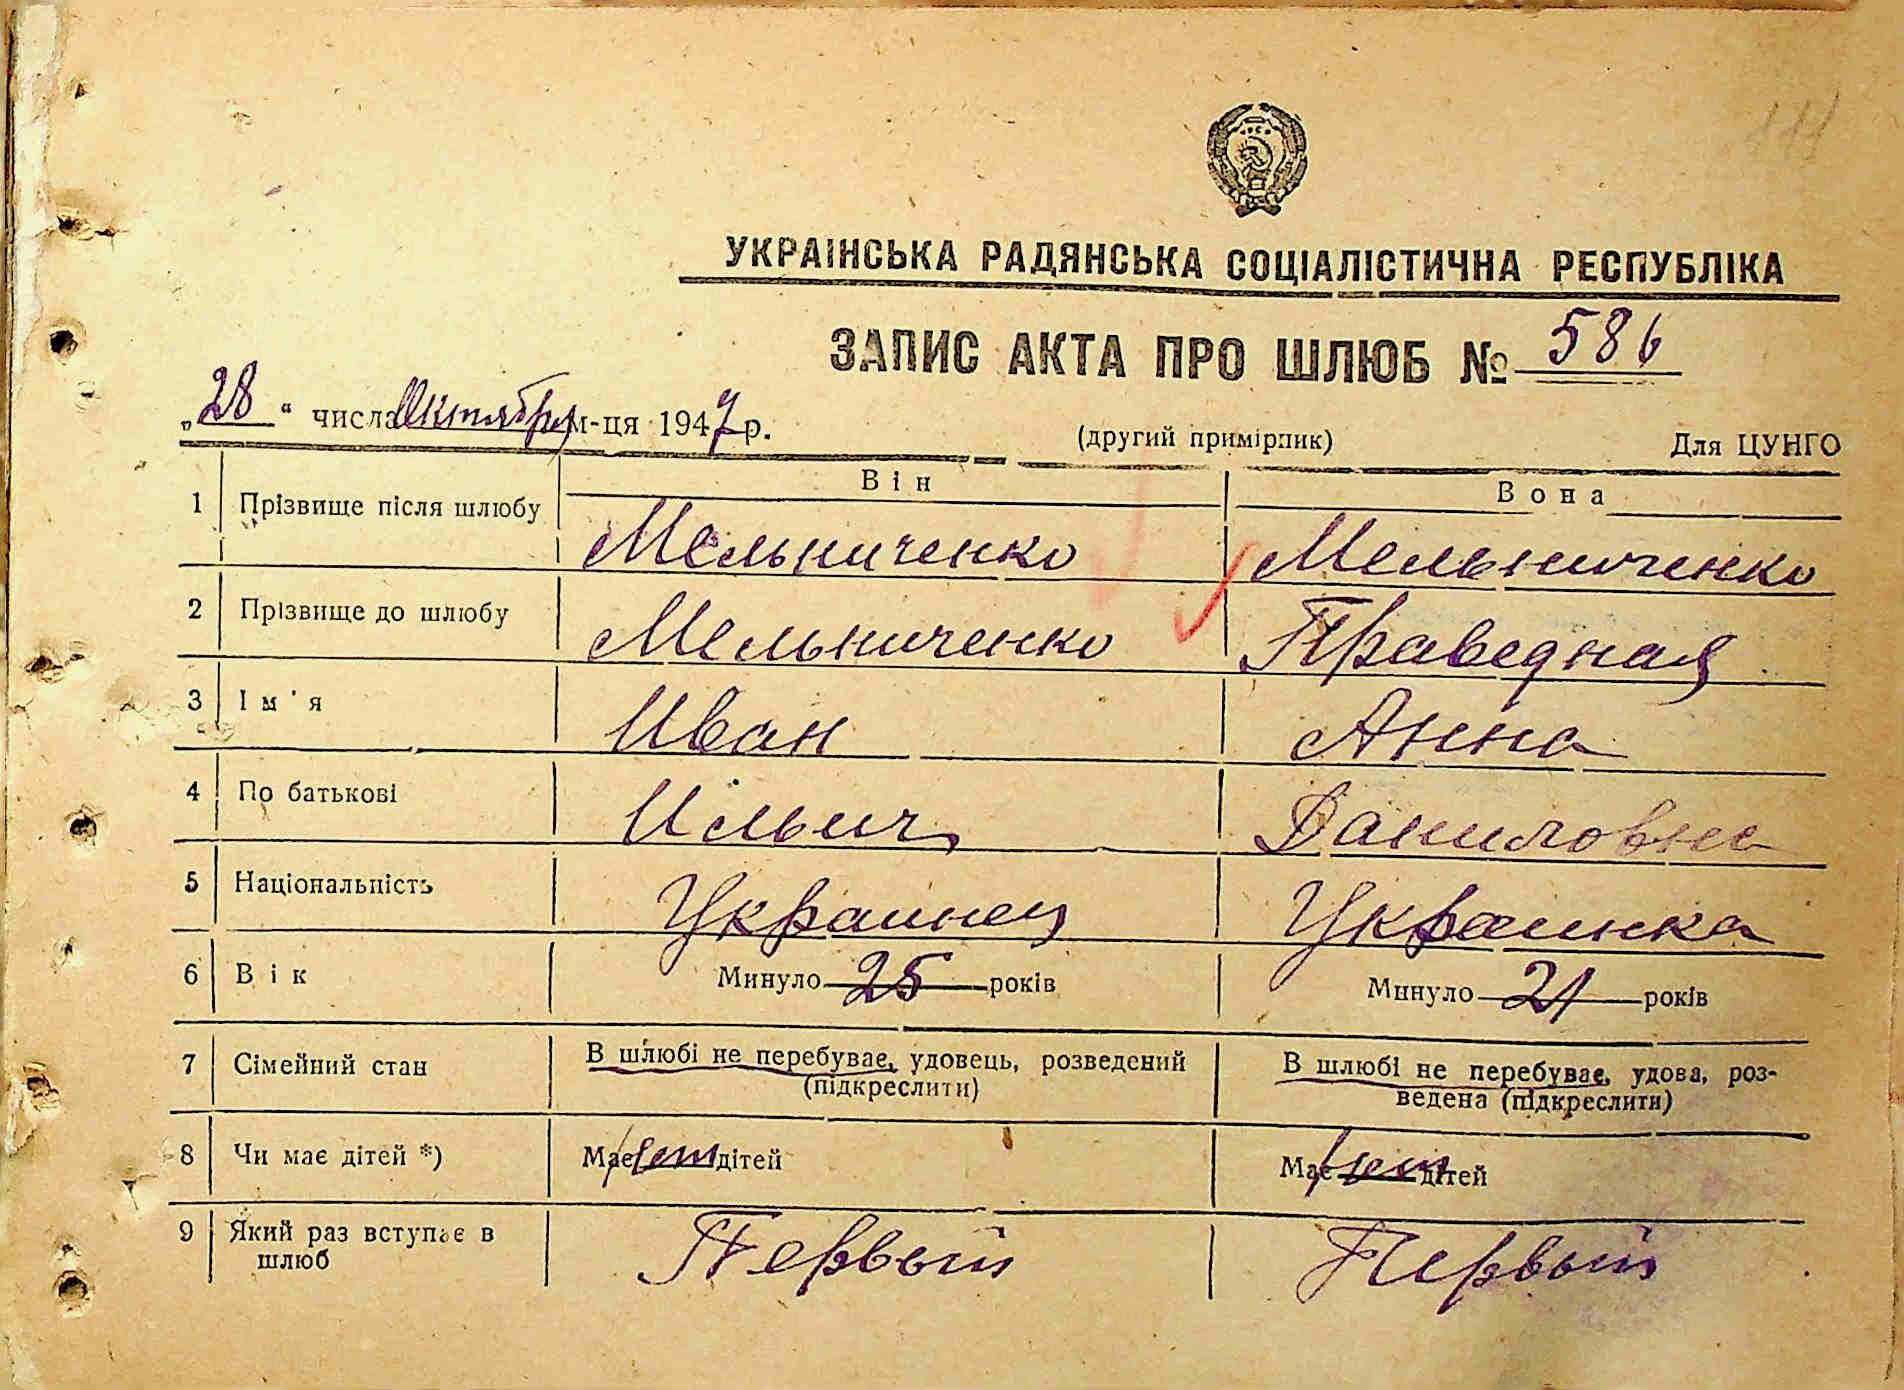 УКРАЇНСЬКА РАДЯНСЬКА СОЦІАЛІСТИЧНА РЕСПУБЛІКА
ЗАПИС АКТА ПРО ШЛЮБ № 586
„28“ числа Октября м-ця 1947 р.
(другий примірник) Для ЦУНГО
Він Вона
1 Прізвище після шлюбу Мельниченко Мельниченко
2 Прізвище до шлюбу Мельниченко Праведная
3 Ім'я Иван Анна
4 По батькові Ильич Даниловна
5 Національність Украинец Украинка
6 Вік Минуло 25 років Минуло 21 років
7 Сімейний стан В шлюбі не перебуває, удовець, розведений (підкреслити) В шлюбі не перебуває, удова, роз-
ведена (підкреслити)
8 Чи має дітей *) Має нет дітей Має нет дітей
9 Який раз вступає в шлюб Первый Первый